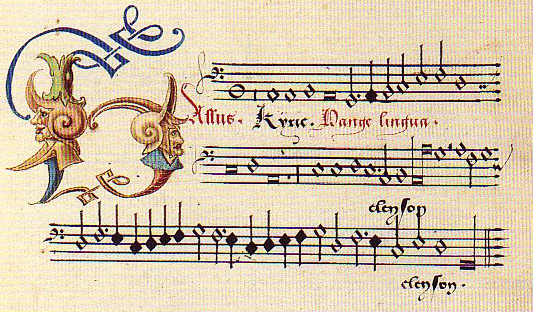 BAssus. Kyrie. Pange lingua.
eleyson
eleyson.